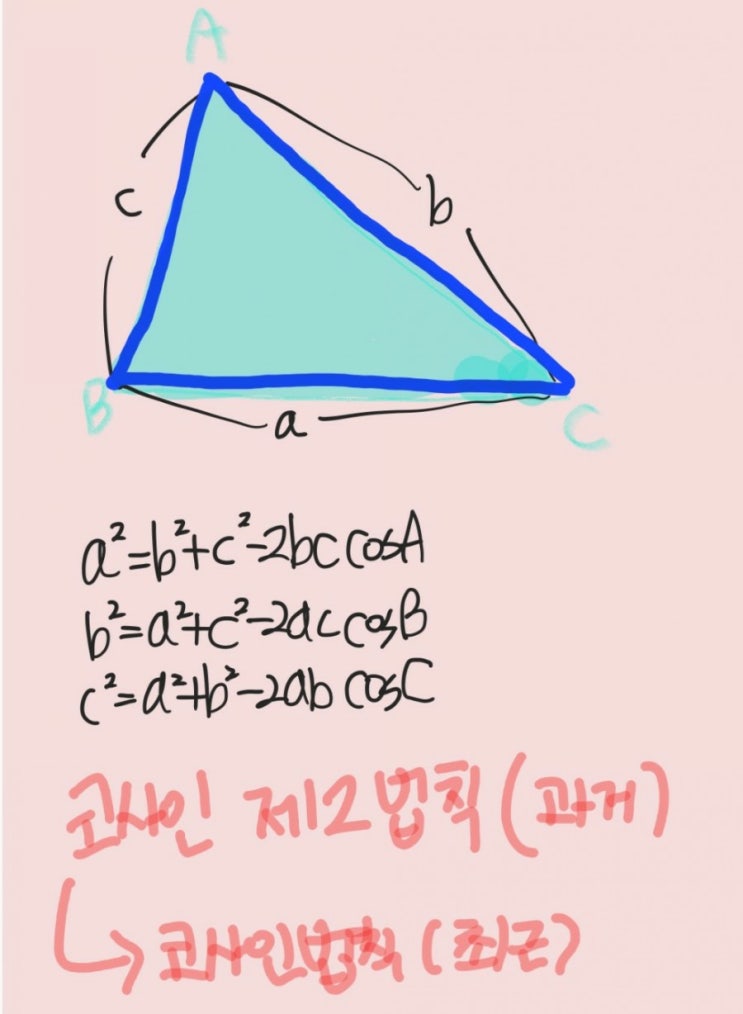 A
c
b
B
a
C
a²=b²+c²-2bc cosA
b²=a²+c²-2ac cosB
c²=a²+b²-2ab cosC
코사인 제2법칙 (과거)
↳ 코사인법칙 (최근)